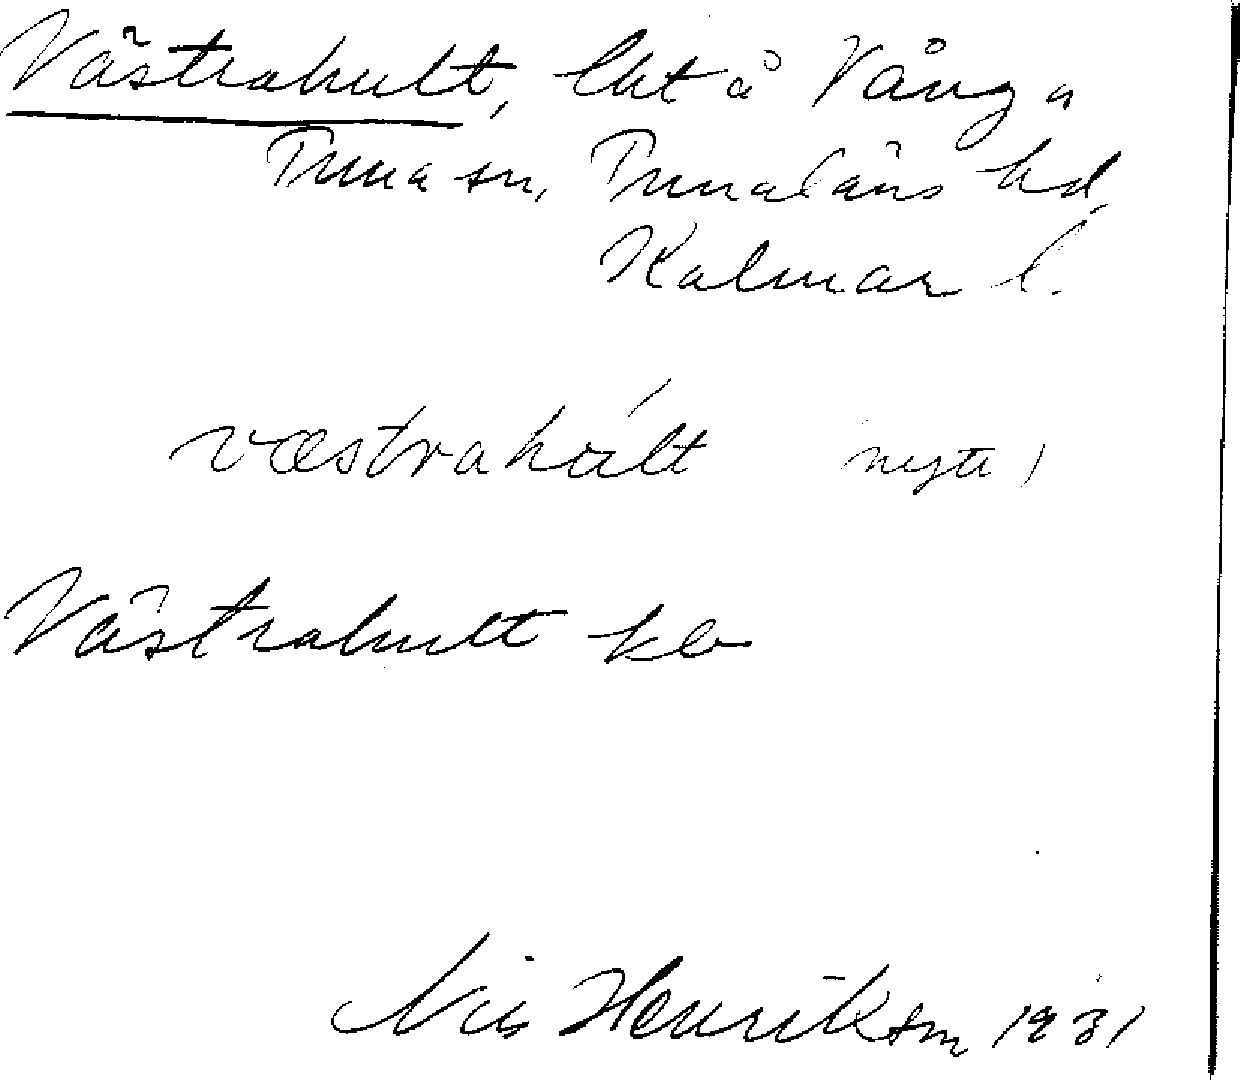 Västrahult, lht å Vånga
Tuna sn, Tunaläns hd,
Kalmar l.
væstrahúlt nytt
Västrahult kb
Nils Henrikson 1931